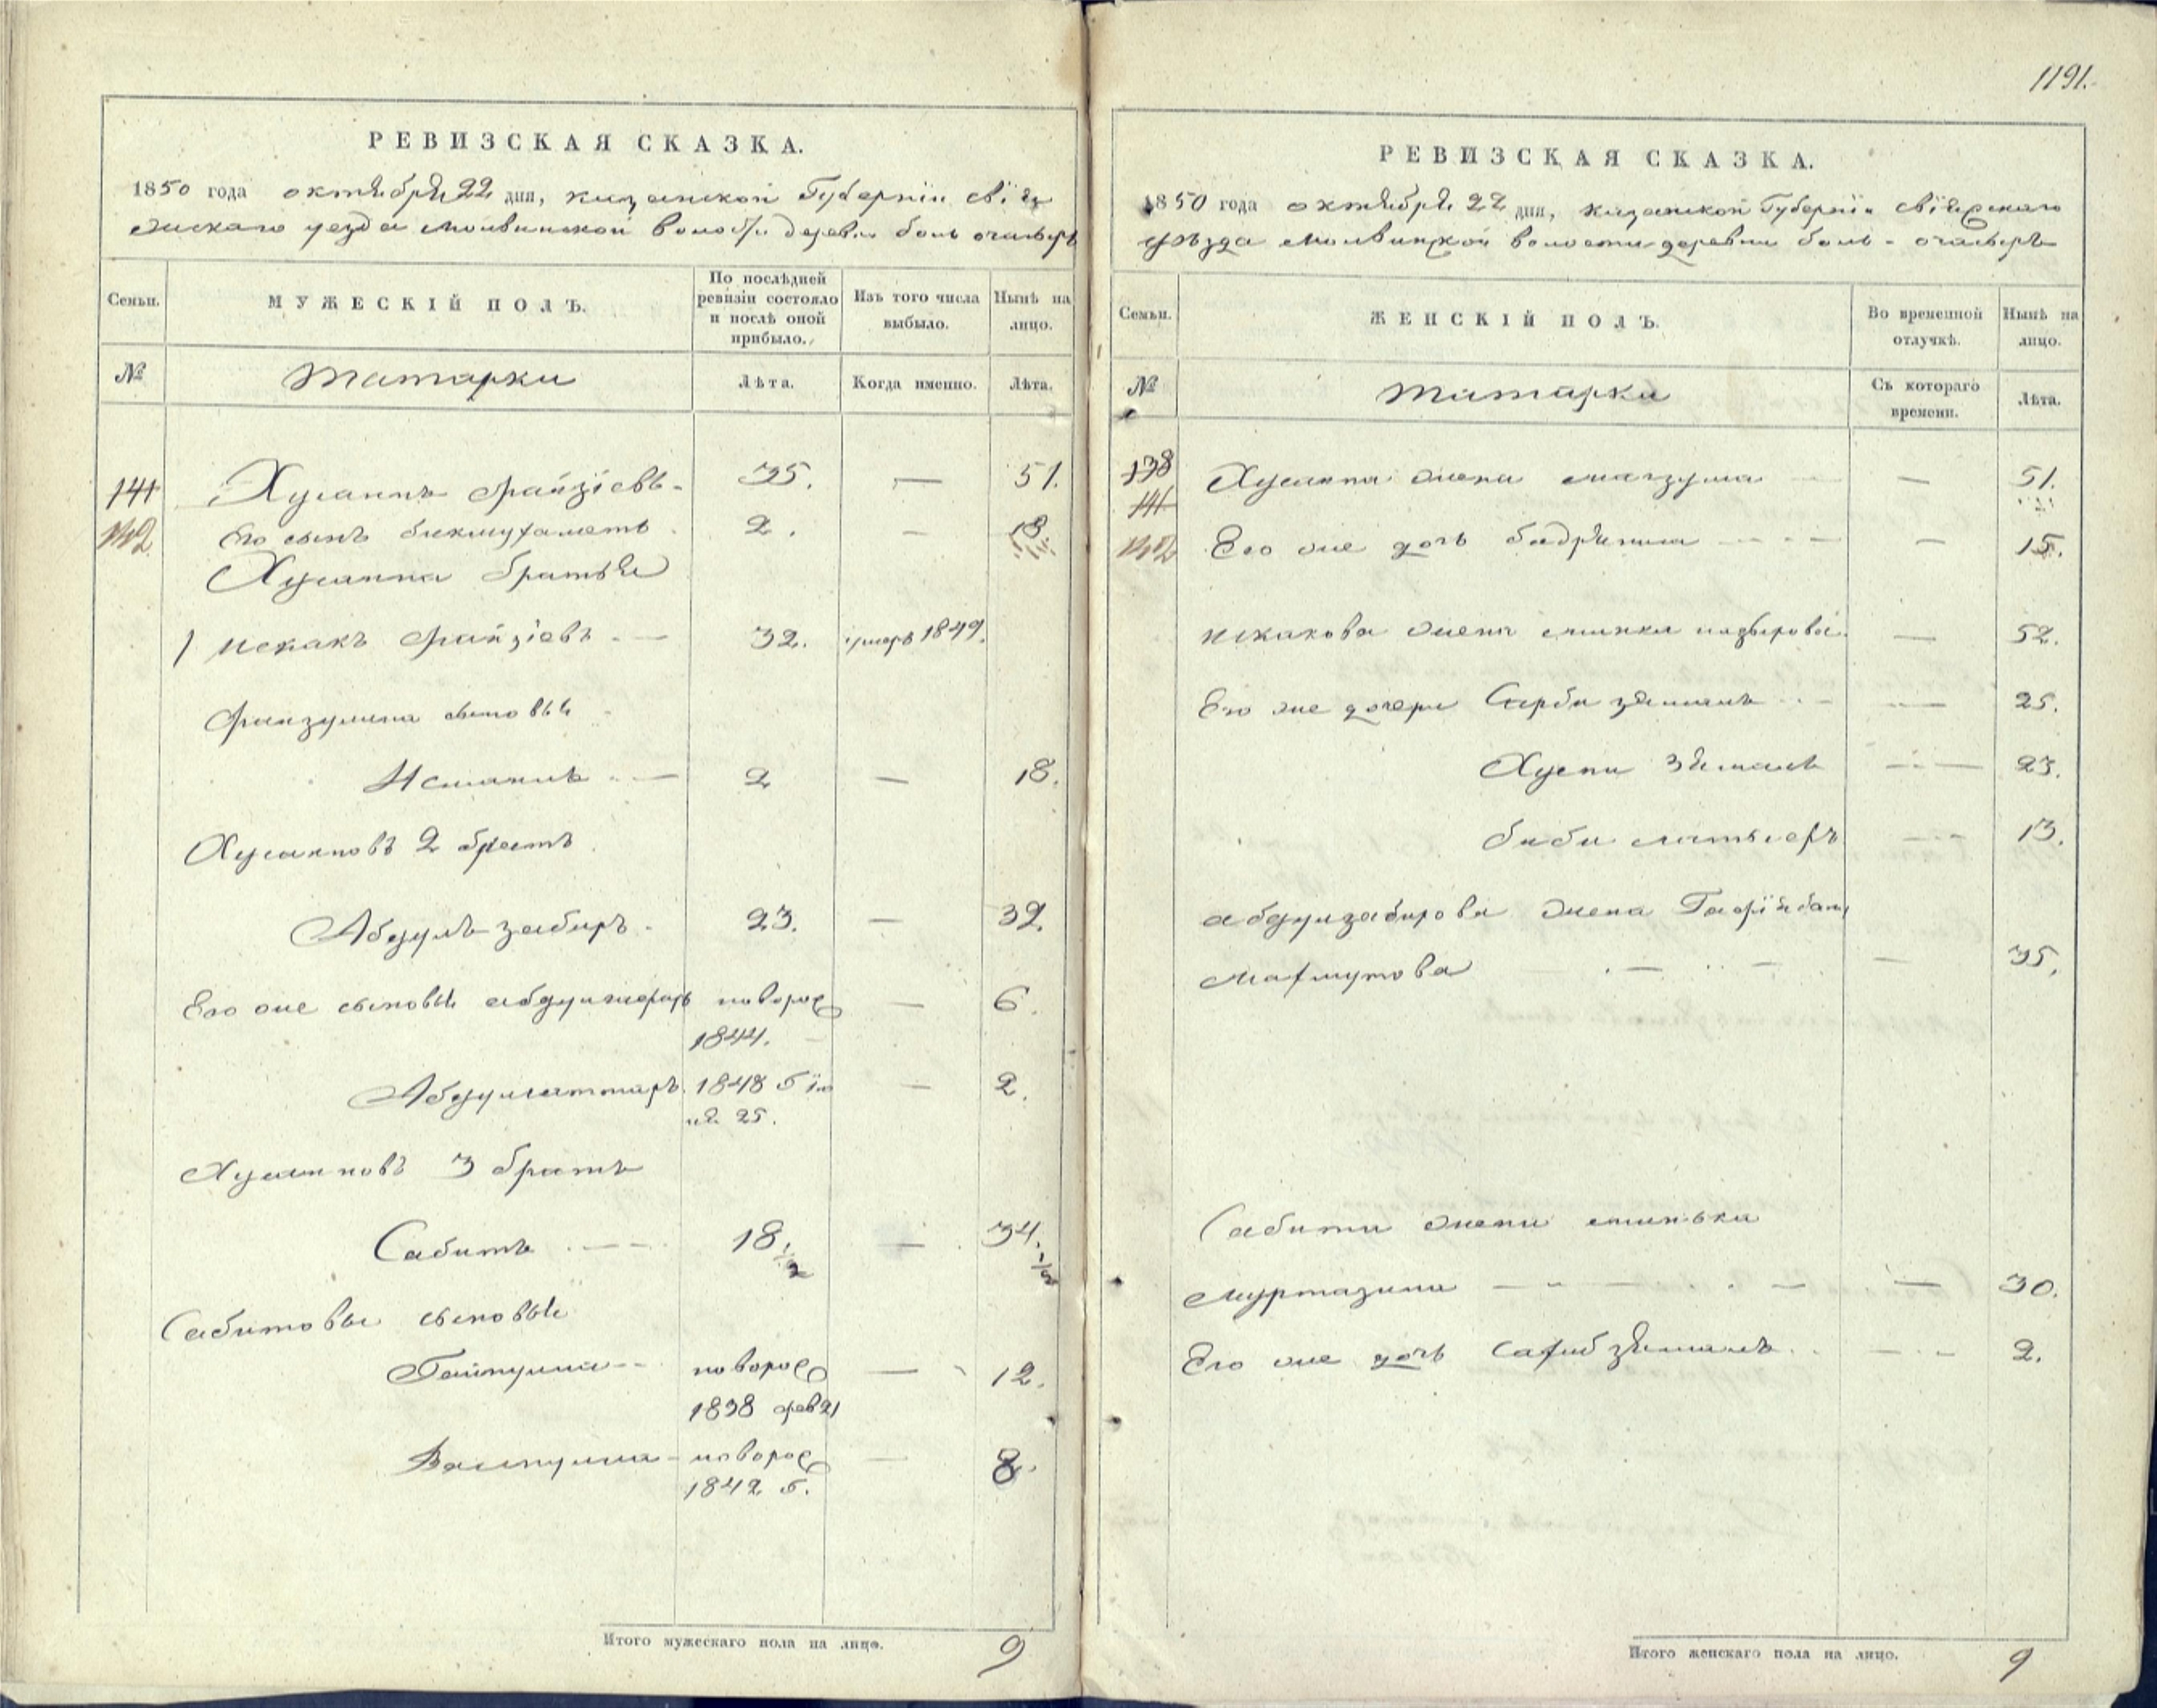 РЕВИЗСКАЯ СКАЗКА.
1850 года октября 22 дня, казанской Губернiи свiяж
скаго уезда молвинской воло деревни боль
Семьи.
МУЖЕСКIЙ ПОЛЪ.
По послѣдней ревизiи состояло и послѣ оной прибыло.
Изъ того числа выбыло.
Нынѣ на лицо.
№
татарки
Лѣта.
Когда именно.
Лѣта.
141 Хусаинъ Файзiевъ 35. — 51.
142 Его сынъ бикмухаметъ 2. — 18.
Хусаина братья
1 Исхакъ Файзiевъ — 32. умеръ 1849.
сыновья
Исмаилъ — 2 — 18.
Хусаиновъ 2 братъ
Абдулъ забиръ 23. — 39.
Его же сыновья новорос — 6.
1844.
Абдулсаттаръ 1848 — 2.
25.
Хусаиновъ 3 братъ
Сабитъ — 18 1/2 — 34. 1/2
Сабитовы сыновья
Гайнулла новорос — 12.
1838 фев 21
новорос — 8.
1842
Итого мужескаго пола на лицо. 9
1191.
РЕВИЗСКАЯ СКАЗКА.
1850 года октября 22 дня, казанской Губернiи свiяжскаго
уѣзда молвинской волости деревни боль
Семьи.
ЖЕНСКIЙ ПОЛЪ.
Во временной отлучкѣ.
Нынѣ на лицо.
№
татарки
Съ котораго времени.
Лѣта.
138 Хусаина жена магзума — 51.
141
142 Его же дочь — 15.
Исхакова жена — 52.
Его же дочери Сарби зямалъ — 25.
Хусни зямалъ — 23.
биби — 13.
абдулзабирова жена
Махмутова — 35.
Сабита жена
Муртазина — 30.
Его же дочь Сахибзямалъ — 2.
Итого женскаго пола на лицо. 9